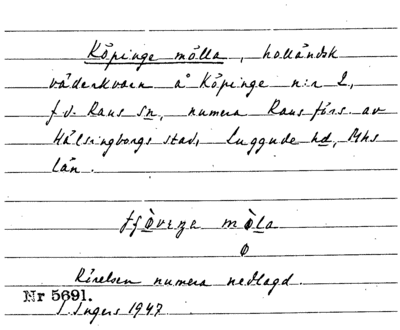 Köpinge mölla, holländsk
väderkvarn å Köpinge n:r 2,
f.d. Raus sn, numera Raus förs. av
Hälsingborgs stad, Luggude hd, Mhs
län.
möla
Rörelsen numera nedlagd.
Nr 5691.
J. Ingers 1947